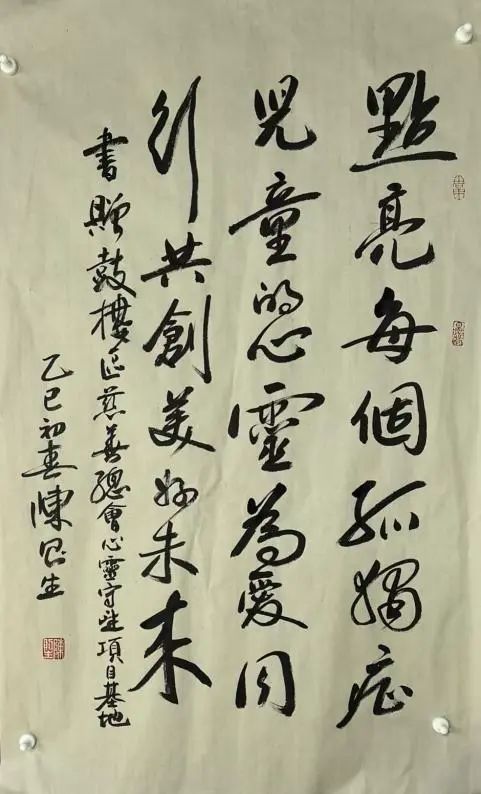 點亮每個孤獨症
兒童的心靈為愛同
行共創美好未來
書贈鼓樓區慈善總會心靈守望項目基地
乙巳初春陳生